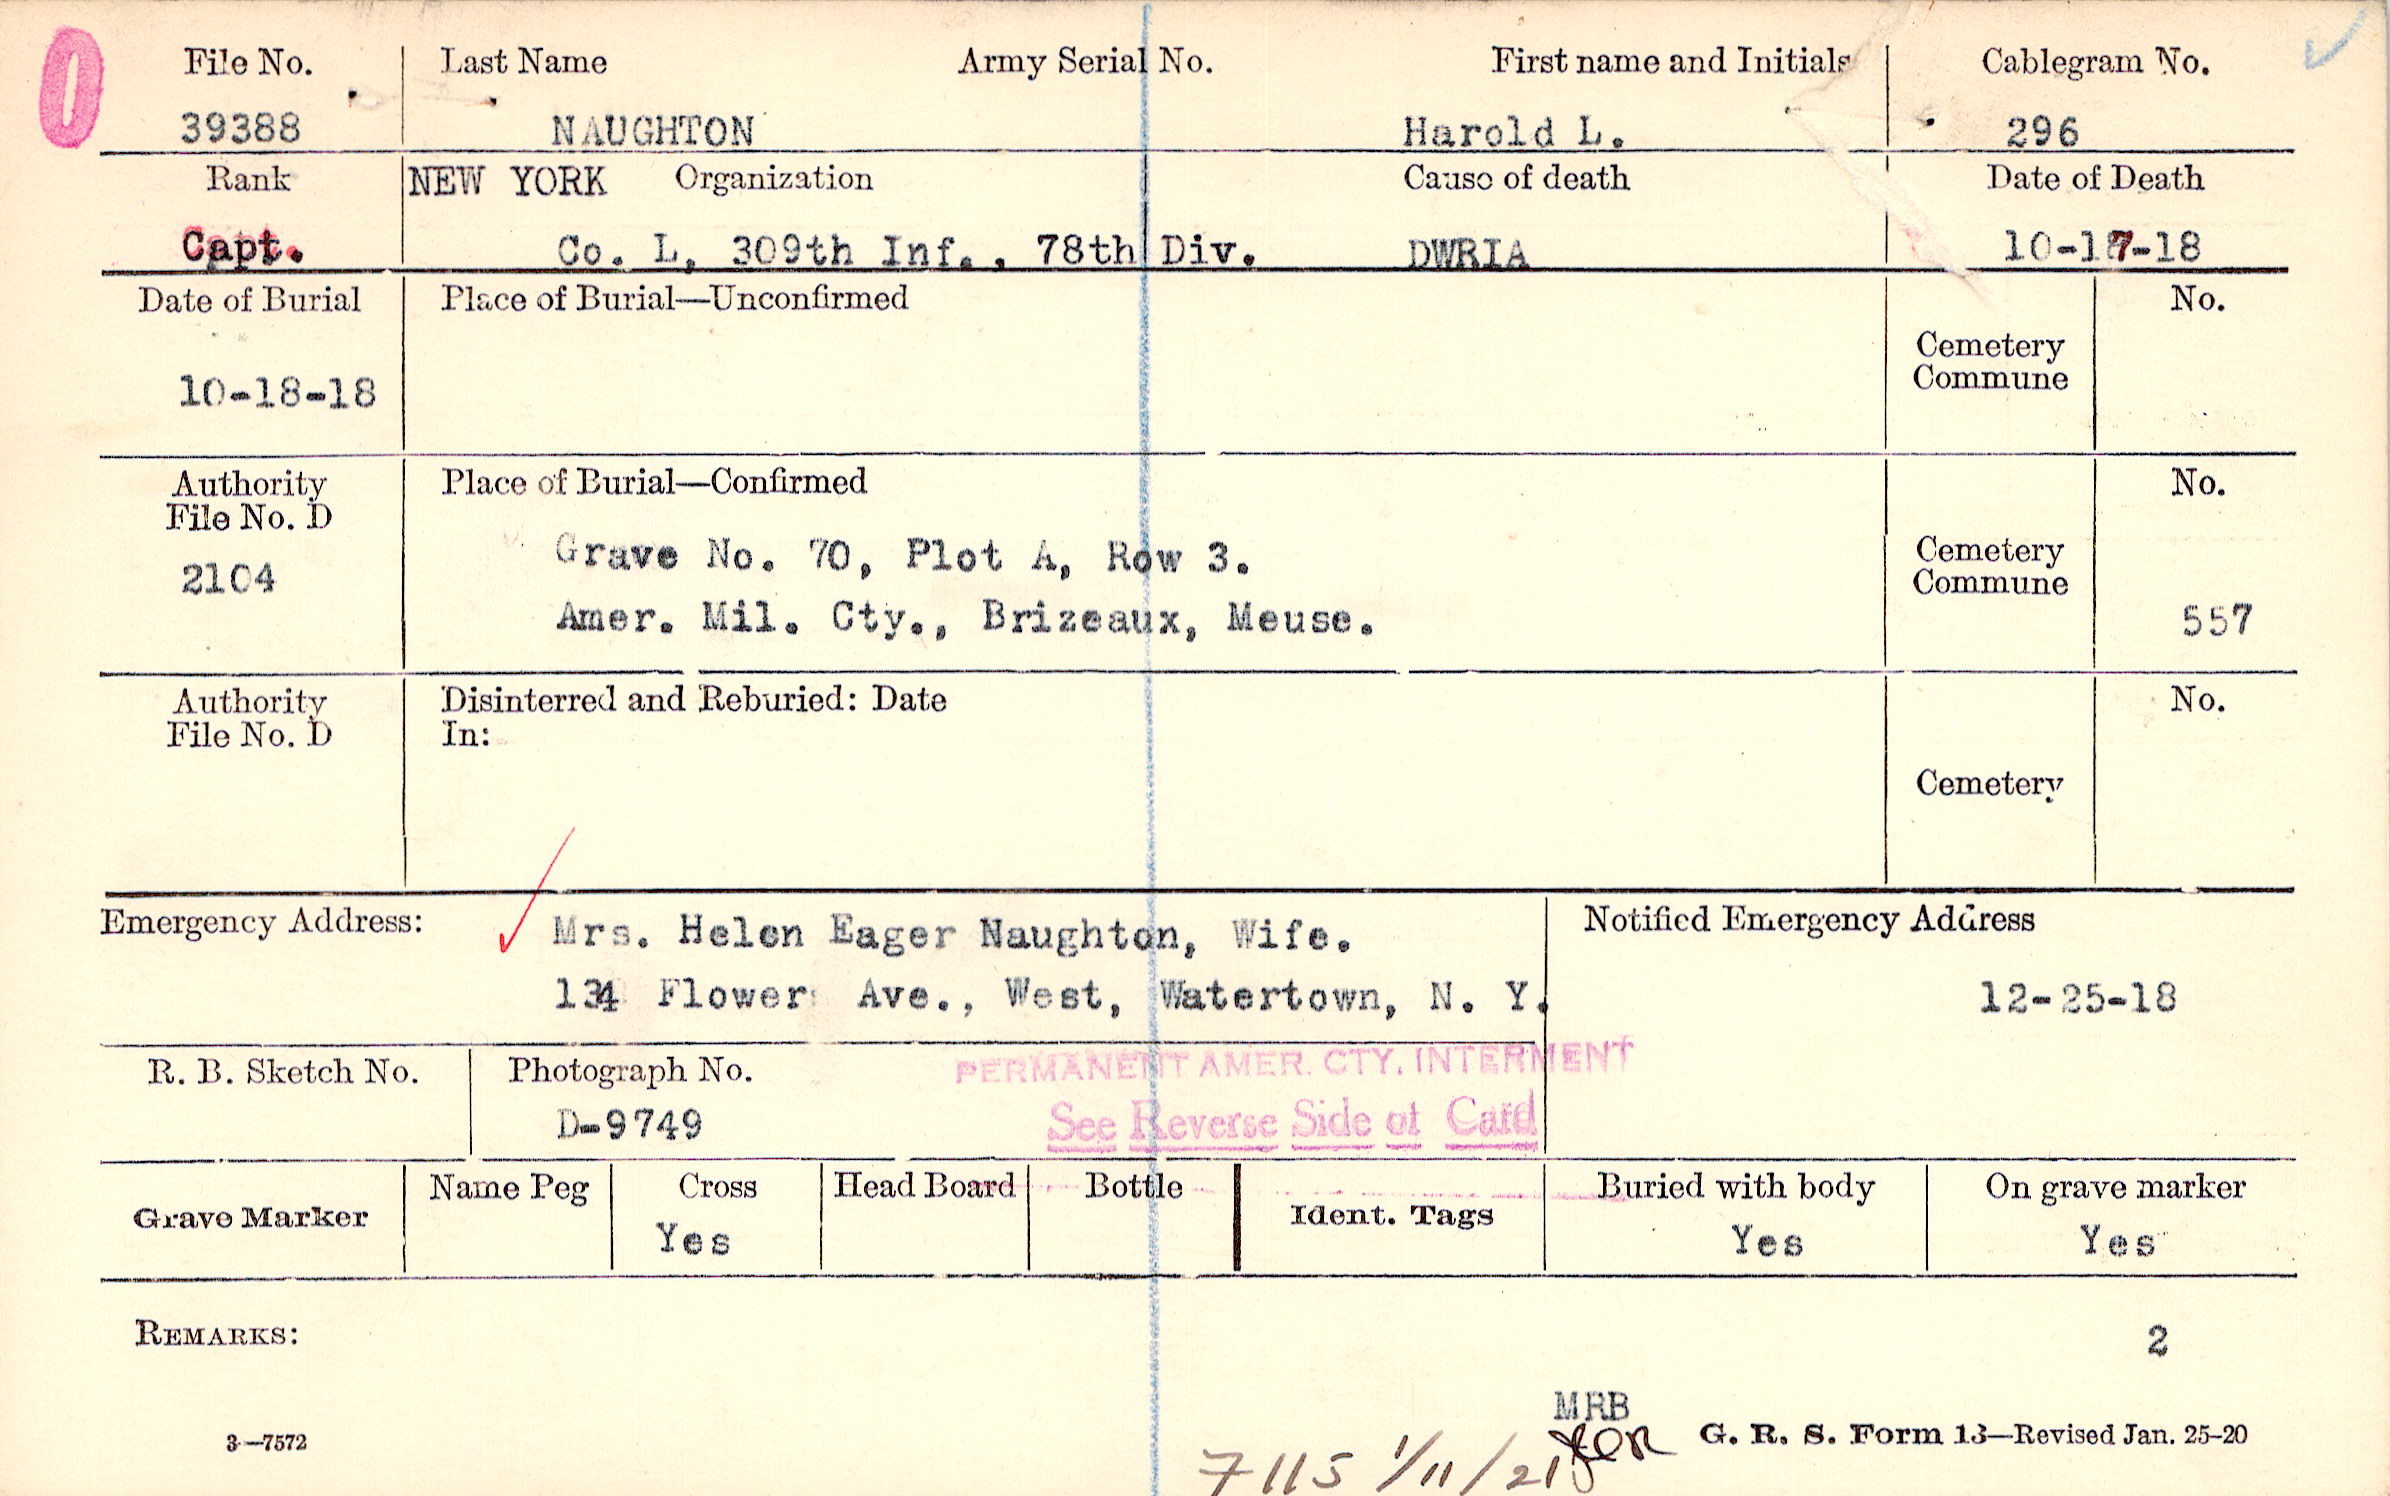 File No.
39388
Last Name
NAUGHTON
Army Serial No.
First name and Initials
Harold L.
Cablegram No.
296
Rank
Capt.
NEW YORK Organization
Co. L, 309th Inf., 78th Div.
Cause of death
DWRIA
Date of Death
10-17-18
Date of Burial
10-18-18
Place of Burial—Unconfirmed
Cemetery
Commune
No.
Authority
File No. D
2104
Place of Burial—Confirmed
Grave No. 70, Plot A, Row 3.
Amer. Mil. Cty., Brizeaux, Meuse.
Cemetery
Commune
No.
557
Authority
File No. D
Disinterred and Reburied: Date
In:
Cemetery
No.
Emergency Address:
Mrs. Helen Eager Naughton, Wife.
134 Flower Ave., West, Watertown, N. Y.
Notified Emergency Address
12-25-18
R. B. Sketch No.
Photograph No.
D-9749
PERMANENT AMER. CTY. INTERMENT
See Reverse Side of Card
Grave Marker
Name Peg
Cross
Yes
Head Board
Bottle
Ident. Tags
Buried with body
Yes
On grave marker
Yes
REMARKS:
2
MRB
3—7572
G. R. S. Form 13—Revised Jan. 25-20
7115 1/11/21